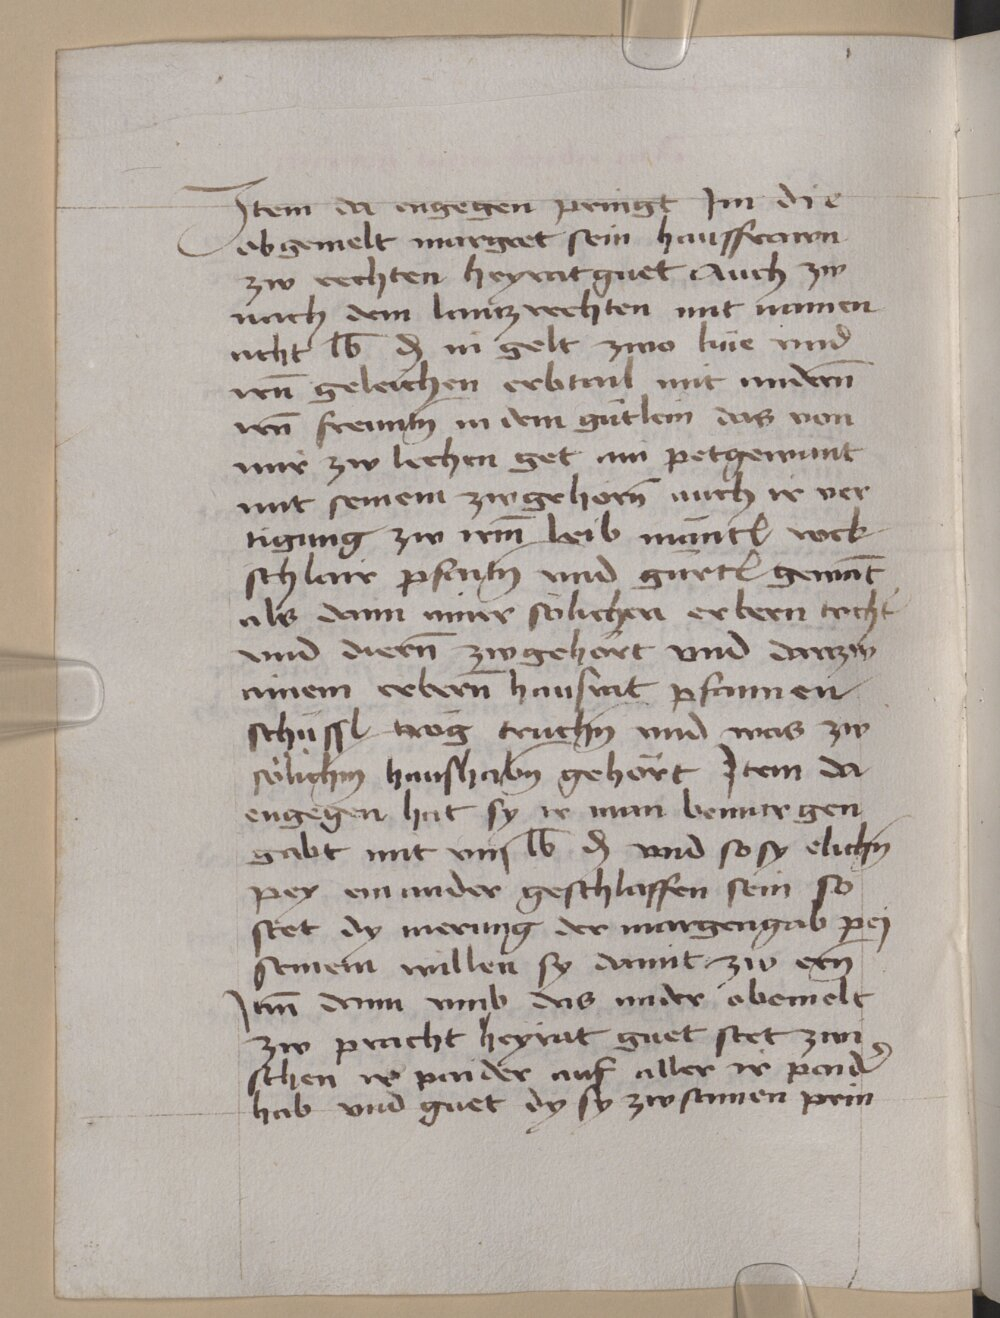 Item da engegen pringt Im die
obgemelt margret sein hausfrawn
zw rechten heyratguet Auch zw
nach dem lantzrechten mit namen
acht lb ₰ in gelt zwo küe und
irn̄ geleichen erbtail mit andern̄
irn̄ freuntn̄ in dem gütlein das von
mir zw lechen get ain petgewant
mit seinem zwgehörn̄ auch ir ver
tigung zw irm̄ leib mäntl rock
schlair pfaitn̄ und gürtl gewāt
als dann ainer sölichen erbern tocht
und diern̄ zwgehört und darzw
ainem erbern̄ hausrat pfannen
schüssl trög truchn̄ und was zw
sölichn̄ haushabn̄ gehört Item da
engegen hat sy ir man bemargen
gabt mit viij lb ₰ und so sy elichn̄
pey einander geschlaffen sein so
stet dy merung der margengab pei
seinem willen sy damit zw ern̄
Itm̄ dann umb das ander obemelt
zw pracht heyrat guet stet zwi
schen ir paider auf aller ir paid
hab und guet dy sy zwsamen prin